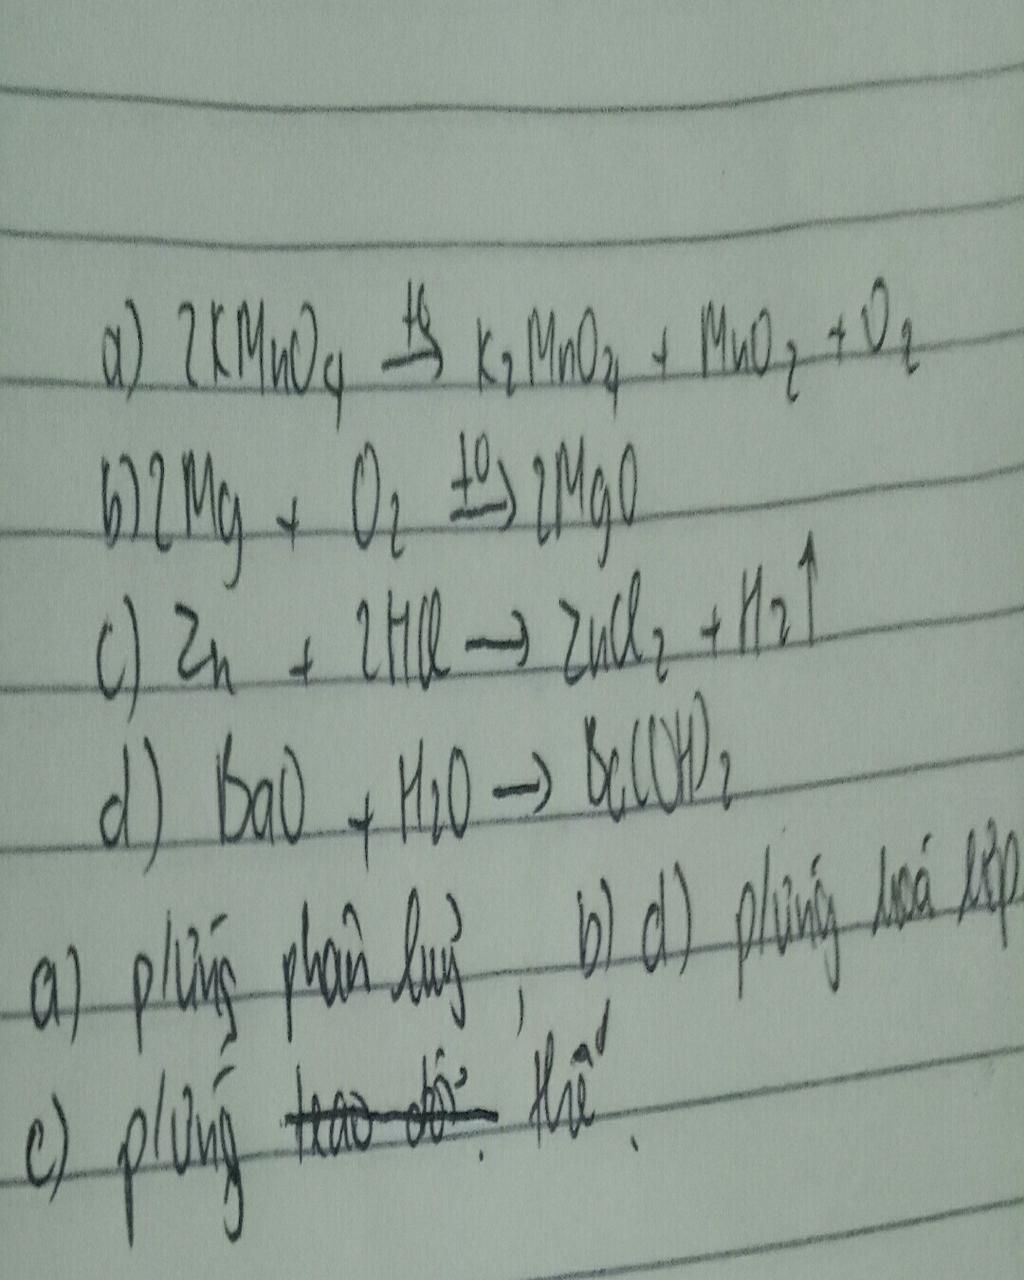 a) 2KMnO₄ t⁰→ K₂MnO₄ + MnO₂ + O₂
b) 2Mg + O₂ t⁰→ 2MgO
c) Zn + 2HCl → ZnCl₂ + H₂↑
d) BaO + H₂O → Ba(OH)₂
a) p/ứng phân huỷ, b) d) p/ứng hoá hợp
c) p/ứng trao đổi. thế.